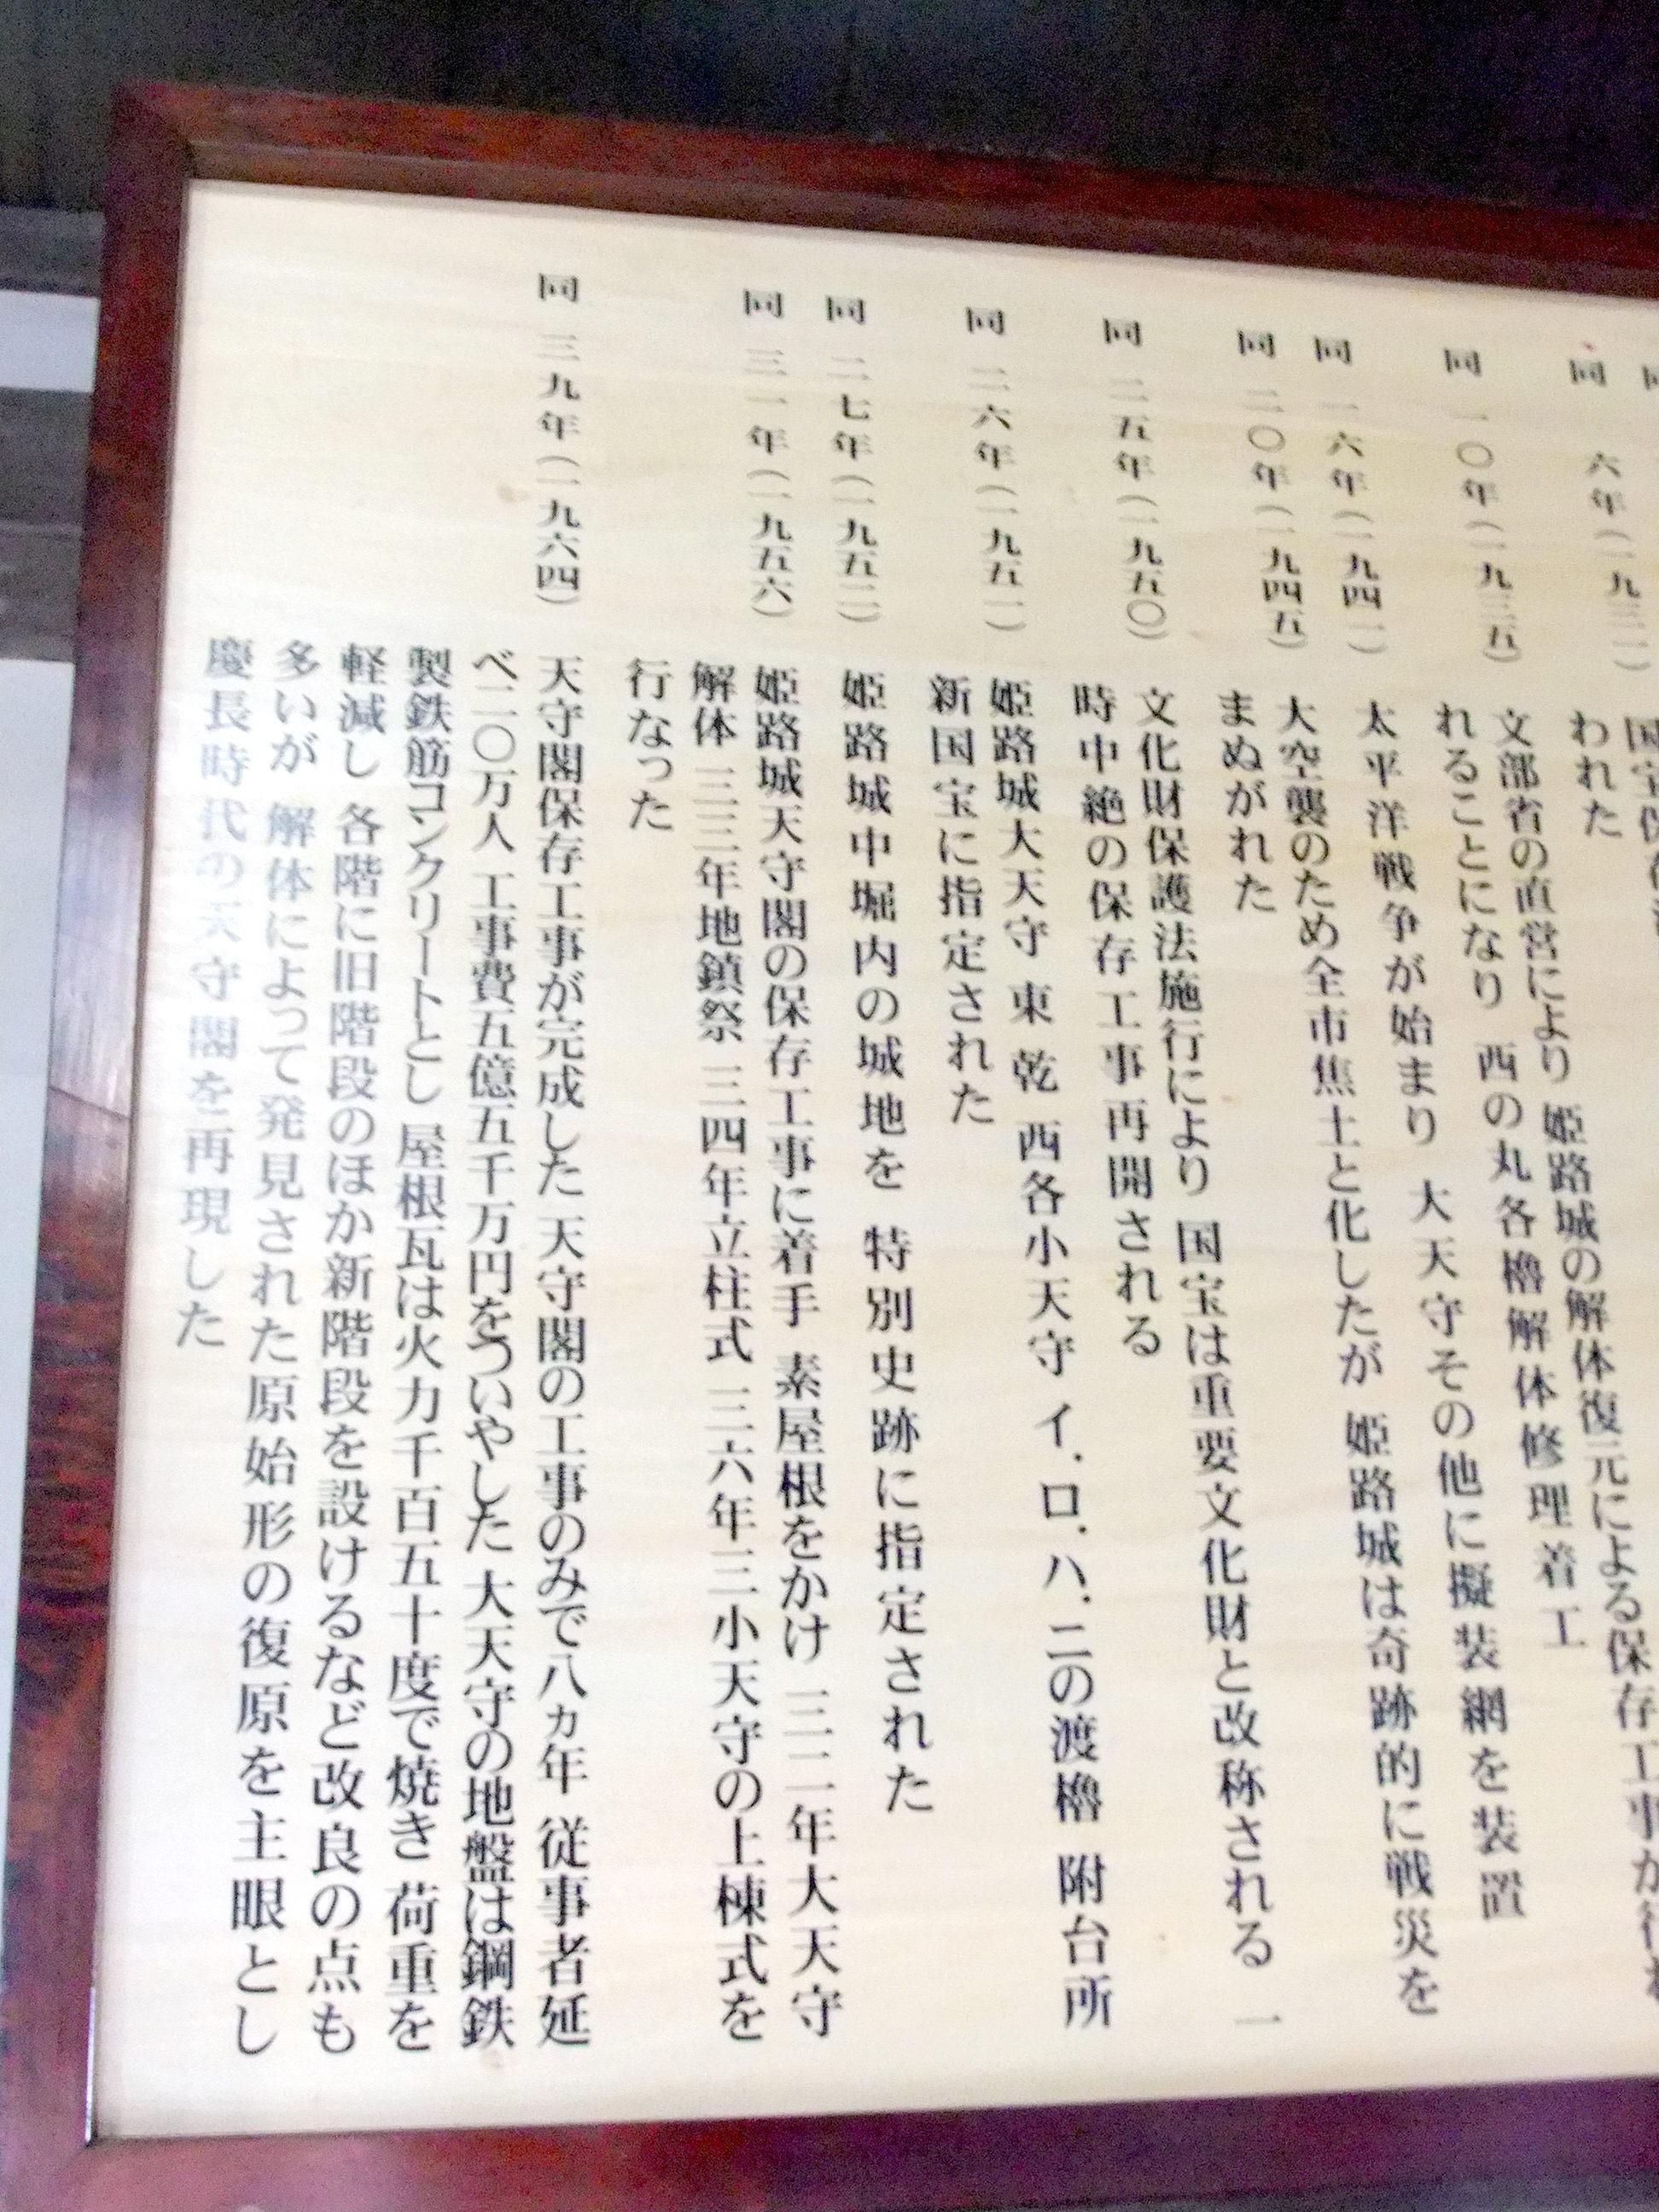 国宝保存
同 六年(一九三一)
われた
姫路城の解体復元による保存工事が行わ
同 一〇年(一九三五)
文部省の直営により 姫路城の解体復元による保存工事が行わ
れることになり 西の丸各櫓解体修理着工
同 一六年(一九四一)
太平洋戦争が始まり 大天守その他に擬装網を装置
同 二〇年(一九四五)
大空襲のため全市焦土と化したが 姫路城は奇跡的に戦災を
まぬがれた
同 二五年(一九五〇)
文化財保護法施行により 国宝は重要文化財と改称される 一
時中絶の保存工事再開される
同 二六年(一九五一)
姫路城大天守 東 乾 西各小天守 イ.ロ.ハ.ニの渡櫓 附台所
新国宝に指定された
同 二七年(一九五二)
姫路城中堀内の城地を 特別史跡に指定された
同 三一年(一九五六)
姫路城天守閣の保存工事に着手 素屋根をかけ 三二年大天守
解体 三三年地鎮祭 三四年立柱式 三六年三小天守の上棟式を
行なった
同 三九年(一九六四)
天守閣保存工事が完成した 天守閣の工事のみで八カ年 従事者延
べ二〇万人 工事費五億五千万円をついやした 大天守の地盤は鋼鉄
製鉄筋コンクリートとし 屋根瓦は火力千百五十度で焼き 荷重を
軽減し 各階に旧階段のほか新階段を設けるなど改良の点も
多いが 解体によって発見された原始形の復原を主眼とし
慶長時代の天守閣を再現した